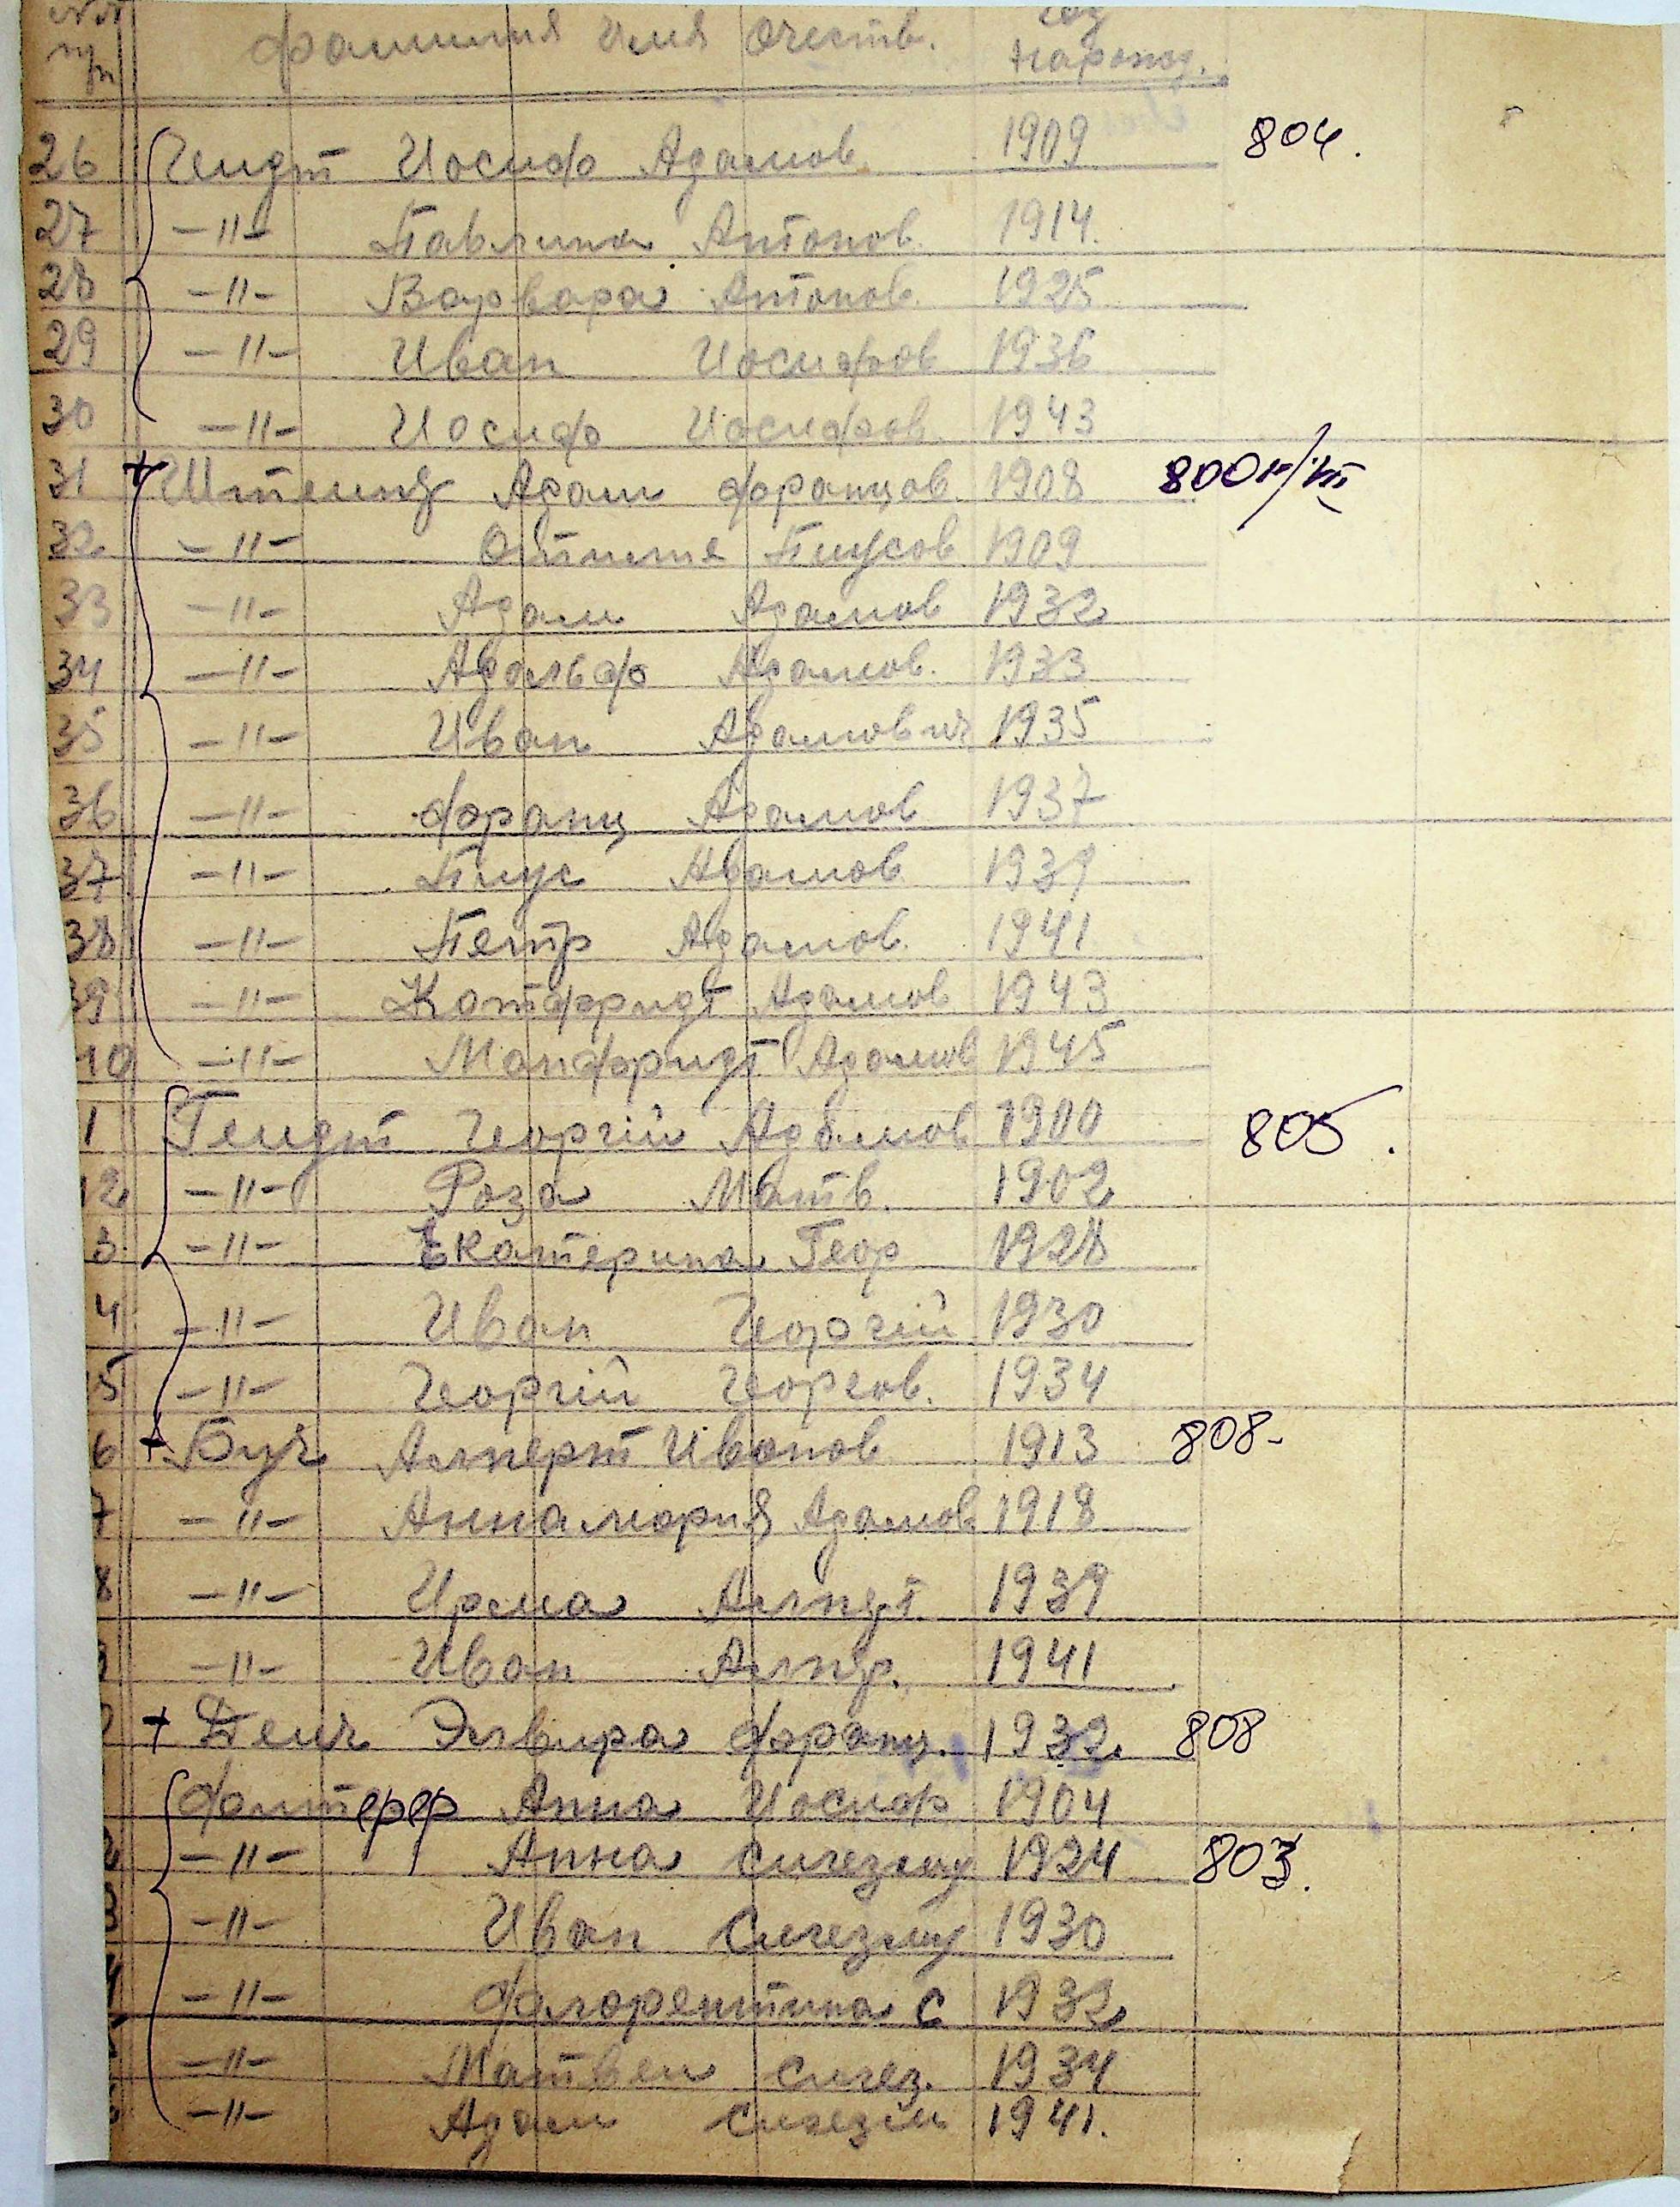 №№ фамилия имя Очеств. год
п/п нарожд.
26 Гендт Иосиф Адамов. 1909 804.
27 -"- Павлина Антонов. 1914.
28 -"- Варвара Антонов. 1925
29 -"- Иван Иосифов 1936
30 -"- Иосиф Иосифов. 1943
31 + Штеинг Адам францов. 1908 800
32 -"- Отилия Пиусов 1909
33 -"- Адам Адамов 1932
34 -"- Адольф Адамов. 1933
35 -"- Иван Адамович 1935
36 -"- франц Адамов 1937
37 -"- Пиус Адамов 1939
38 -"- Петр Адамов. 1941
39 -"- Котфридт Адамов 1943
40 -"- Манфридт Адамов 1945
1 Гендт Георгій Адамов 1900 805.
2 -"- Роза Матв. 1902
3 -"- Екатерина Геор 1928
4 -"- Иван Георгій 1930
5 -"- Георгій Георгов. 1934
6 + Буч Алперт Иванов 1913 808-
7 -"- Аннамария Адамов 1918
8 -"- Ирма 1939
-"- Иван 1941
+ Элвира франц. 1932. 808
фалтерер Анна Иосиф 1904
-"- Анна Сигезму 1924 803.
3 -"- Иван Сигезму 1930
4 -"- флорентина С 1932
-"- Матвеи Сигез. 1934
-"- Адам Сигезм 1941.